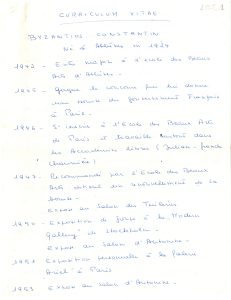 CURRICULUM VITAE
1953
BYZANTIOS CONSTANTIN
Né à Athènes en 1924
1942 - Entré major à l'école des Beaux
Arts d'Athènes.
1945 - Gagne le concours qui lui donne
une bourse du gouvernement Français
à Paris.
1946 - S'inscrit à l'École des Beaux Arts
de Paris et travaille surtout dans
les Académies libres (Julian - grande
chaumière)
1947. Recommandé par l'École des Beaux
Arts obtient un renouvellement de la
bourse.
Expose au Salon des Tuileries
1950 - Exposition de groupe à la Modern
Gallery de Stockholm.
Expose au Salon d'Automne.
1951 Exposition personnelle à la Galerie
Ariel à Paris
1953 Expose au salon d'Automne.